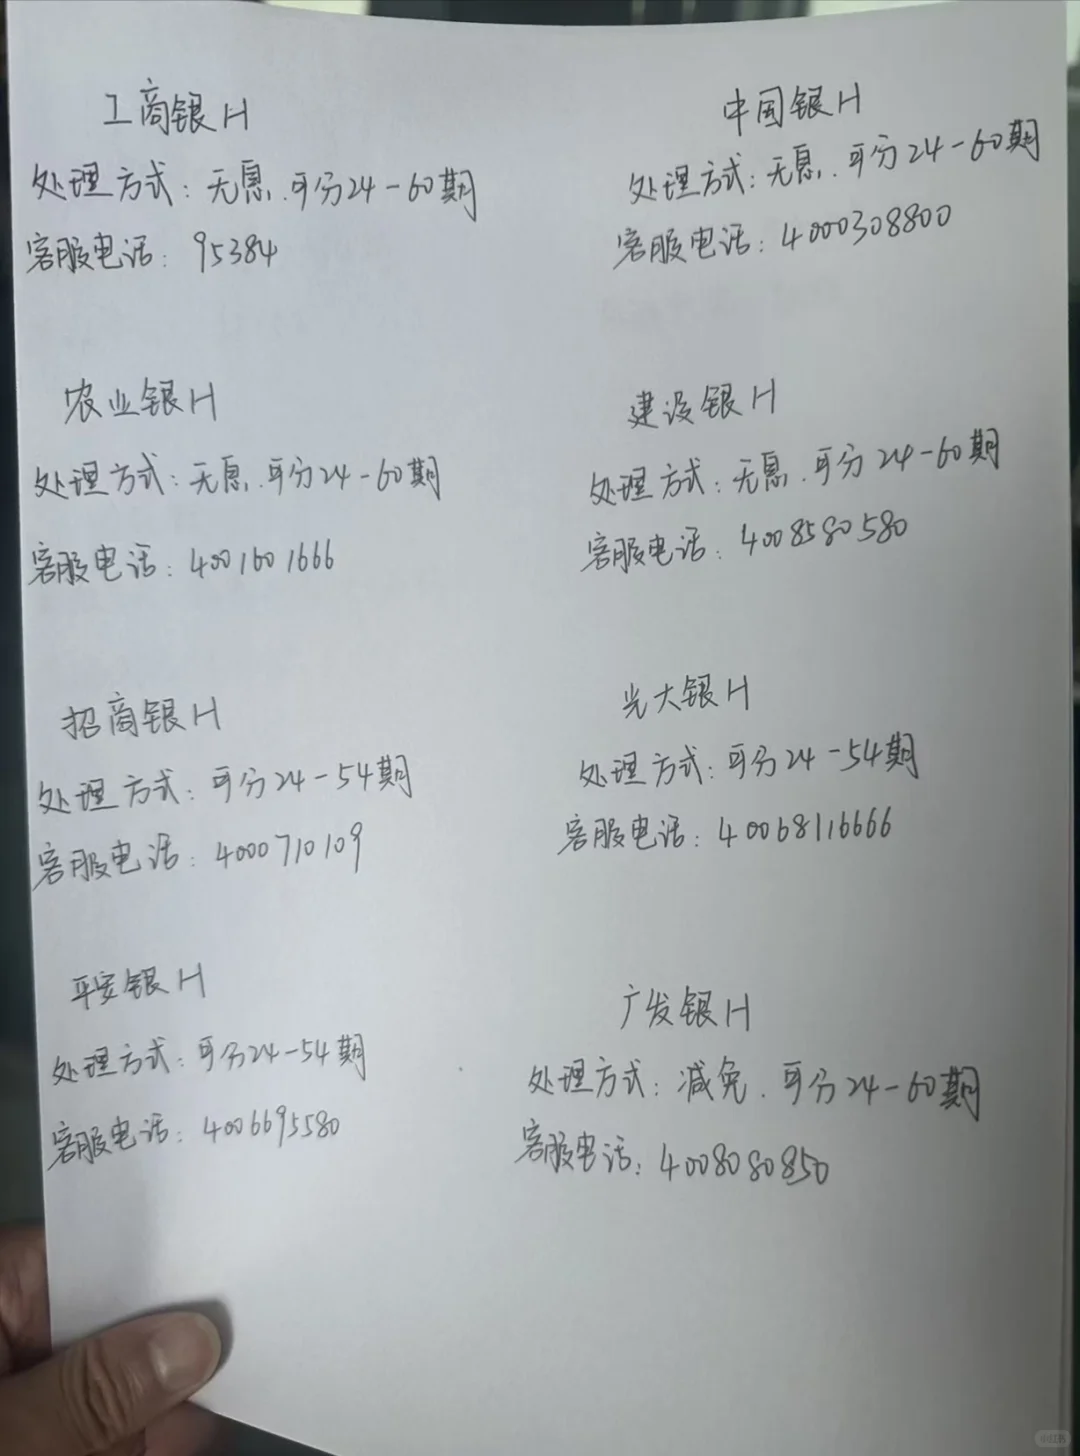 工商银H
处理方式：无息.可分24-60期
客服电话：95384
中国银H
处理方式:无息.可分24-60期
客服电话：4000308800
农业银H
处理方式:无息.可分24-60期
客服电话：4001601666
建设银H
处理方式：无息.可分24-60期
客服电话：4008580580
招商银H
处理方式：可分24-54期
客服电话：4000710109
光大银H
处理方式：可分24-54期
客服电话：40068116666
平安银H
处理方式：可分24-54期
客服电话：4006695580
广发银H
处理方式：减免.可分24-60期
客服电话：4008080850